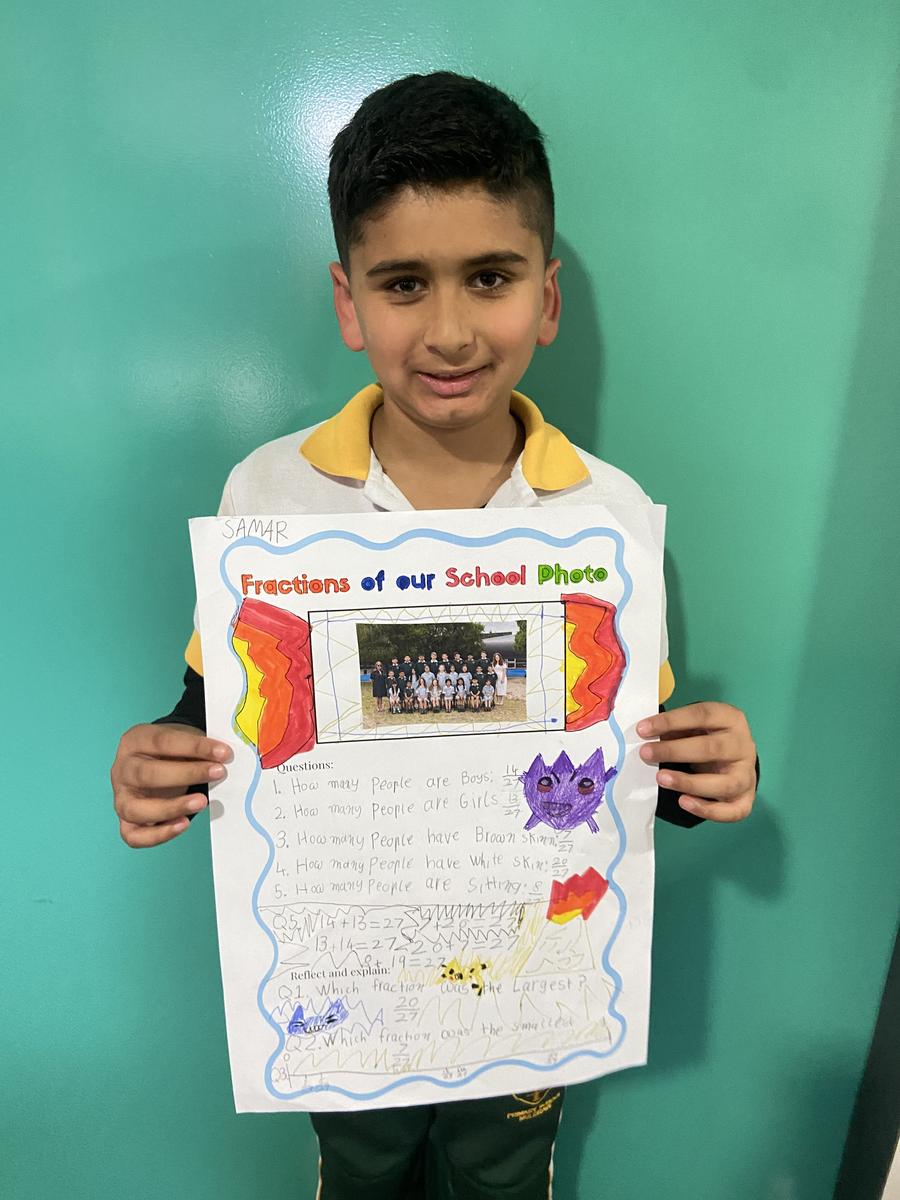 SAMAR
Fractions of our School Photo
Questions:
1. How many People are Boys: 14/27
2. How many People are Girls 13/27
3. How many People have Brown skinn: 7/27
4. How many People have white skin: 20/27
5. How many People are Sitting: 8
Q5. 14+13=27 7+20=27
13+14=27 20+7=27
8+19=27
Reflect and explain:
Q1. Which fraction was the Largest?
20/27
Q2. Which fraction was the smallest
7/27
Q3
PRIMARY